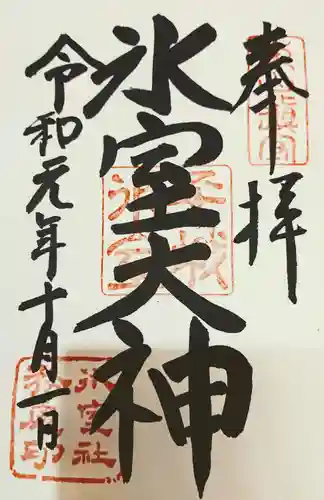 奉拝
氷室大神
令和元年十月一日